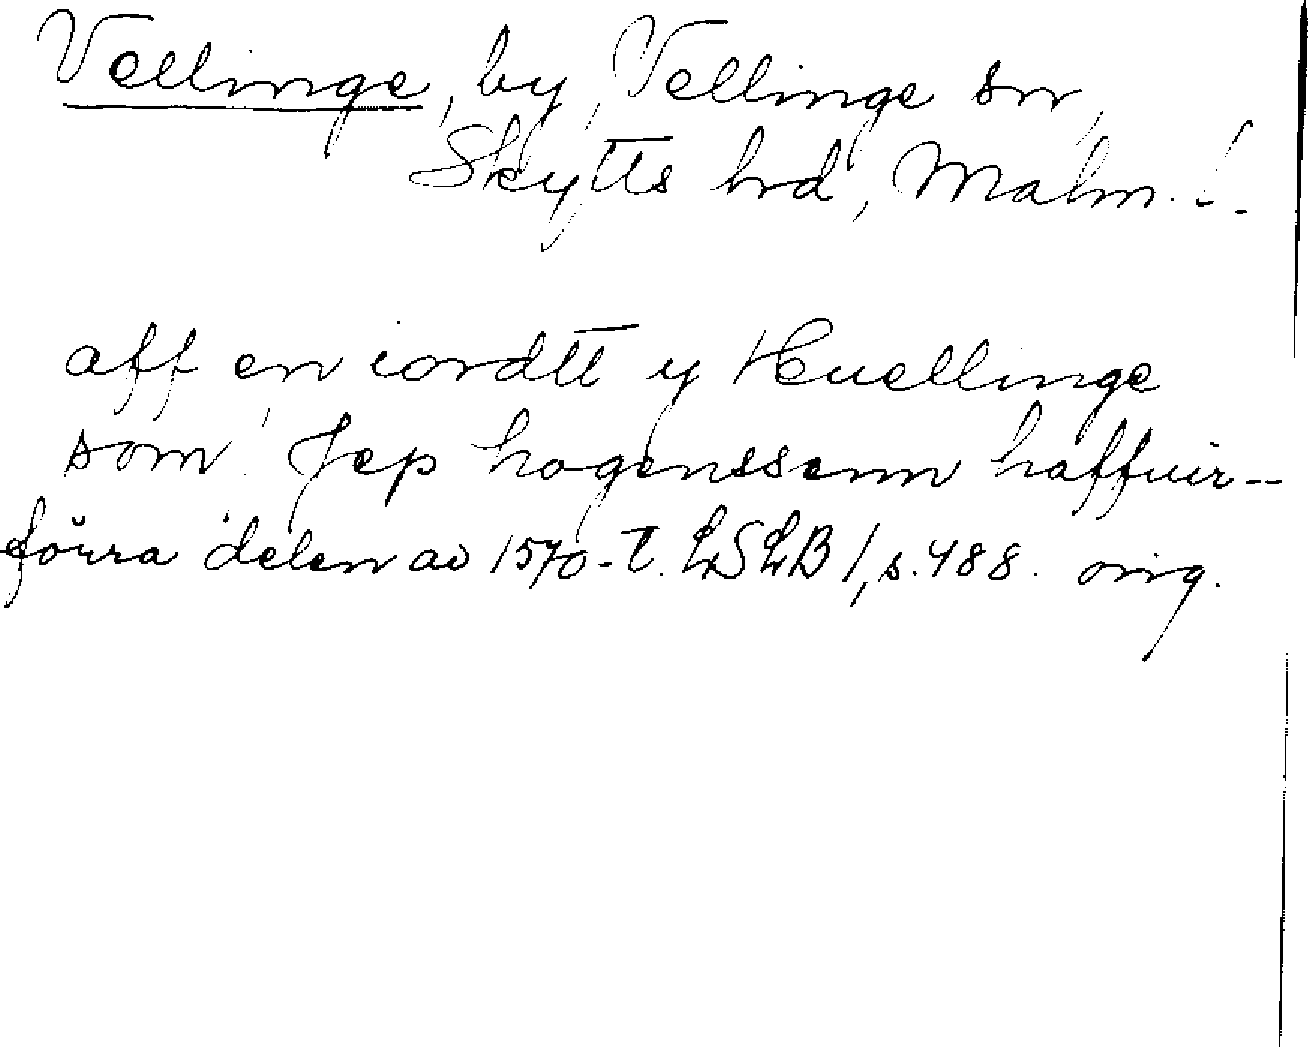 Vellinge, by, Vellinge sn,
Skytts hrd, Malm. l.
aff en iordtt y Huellinge
som Jep hogenssenn haffuir--
förra delen av 1570-t. LSLB 1, s. 488. orig.